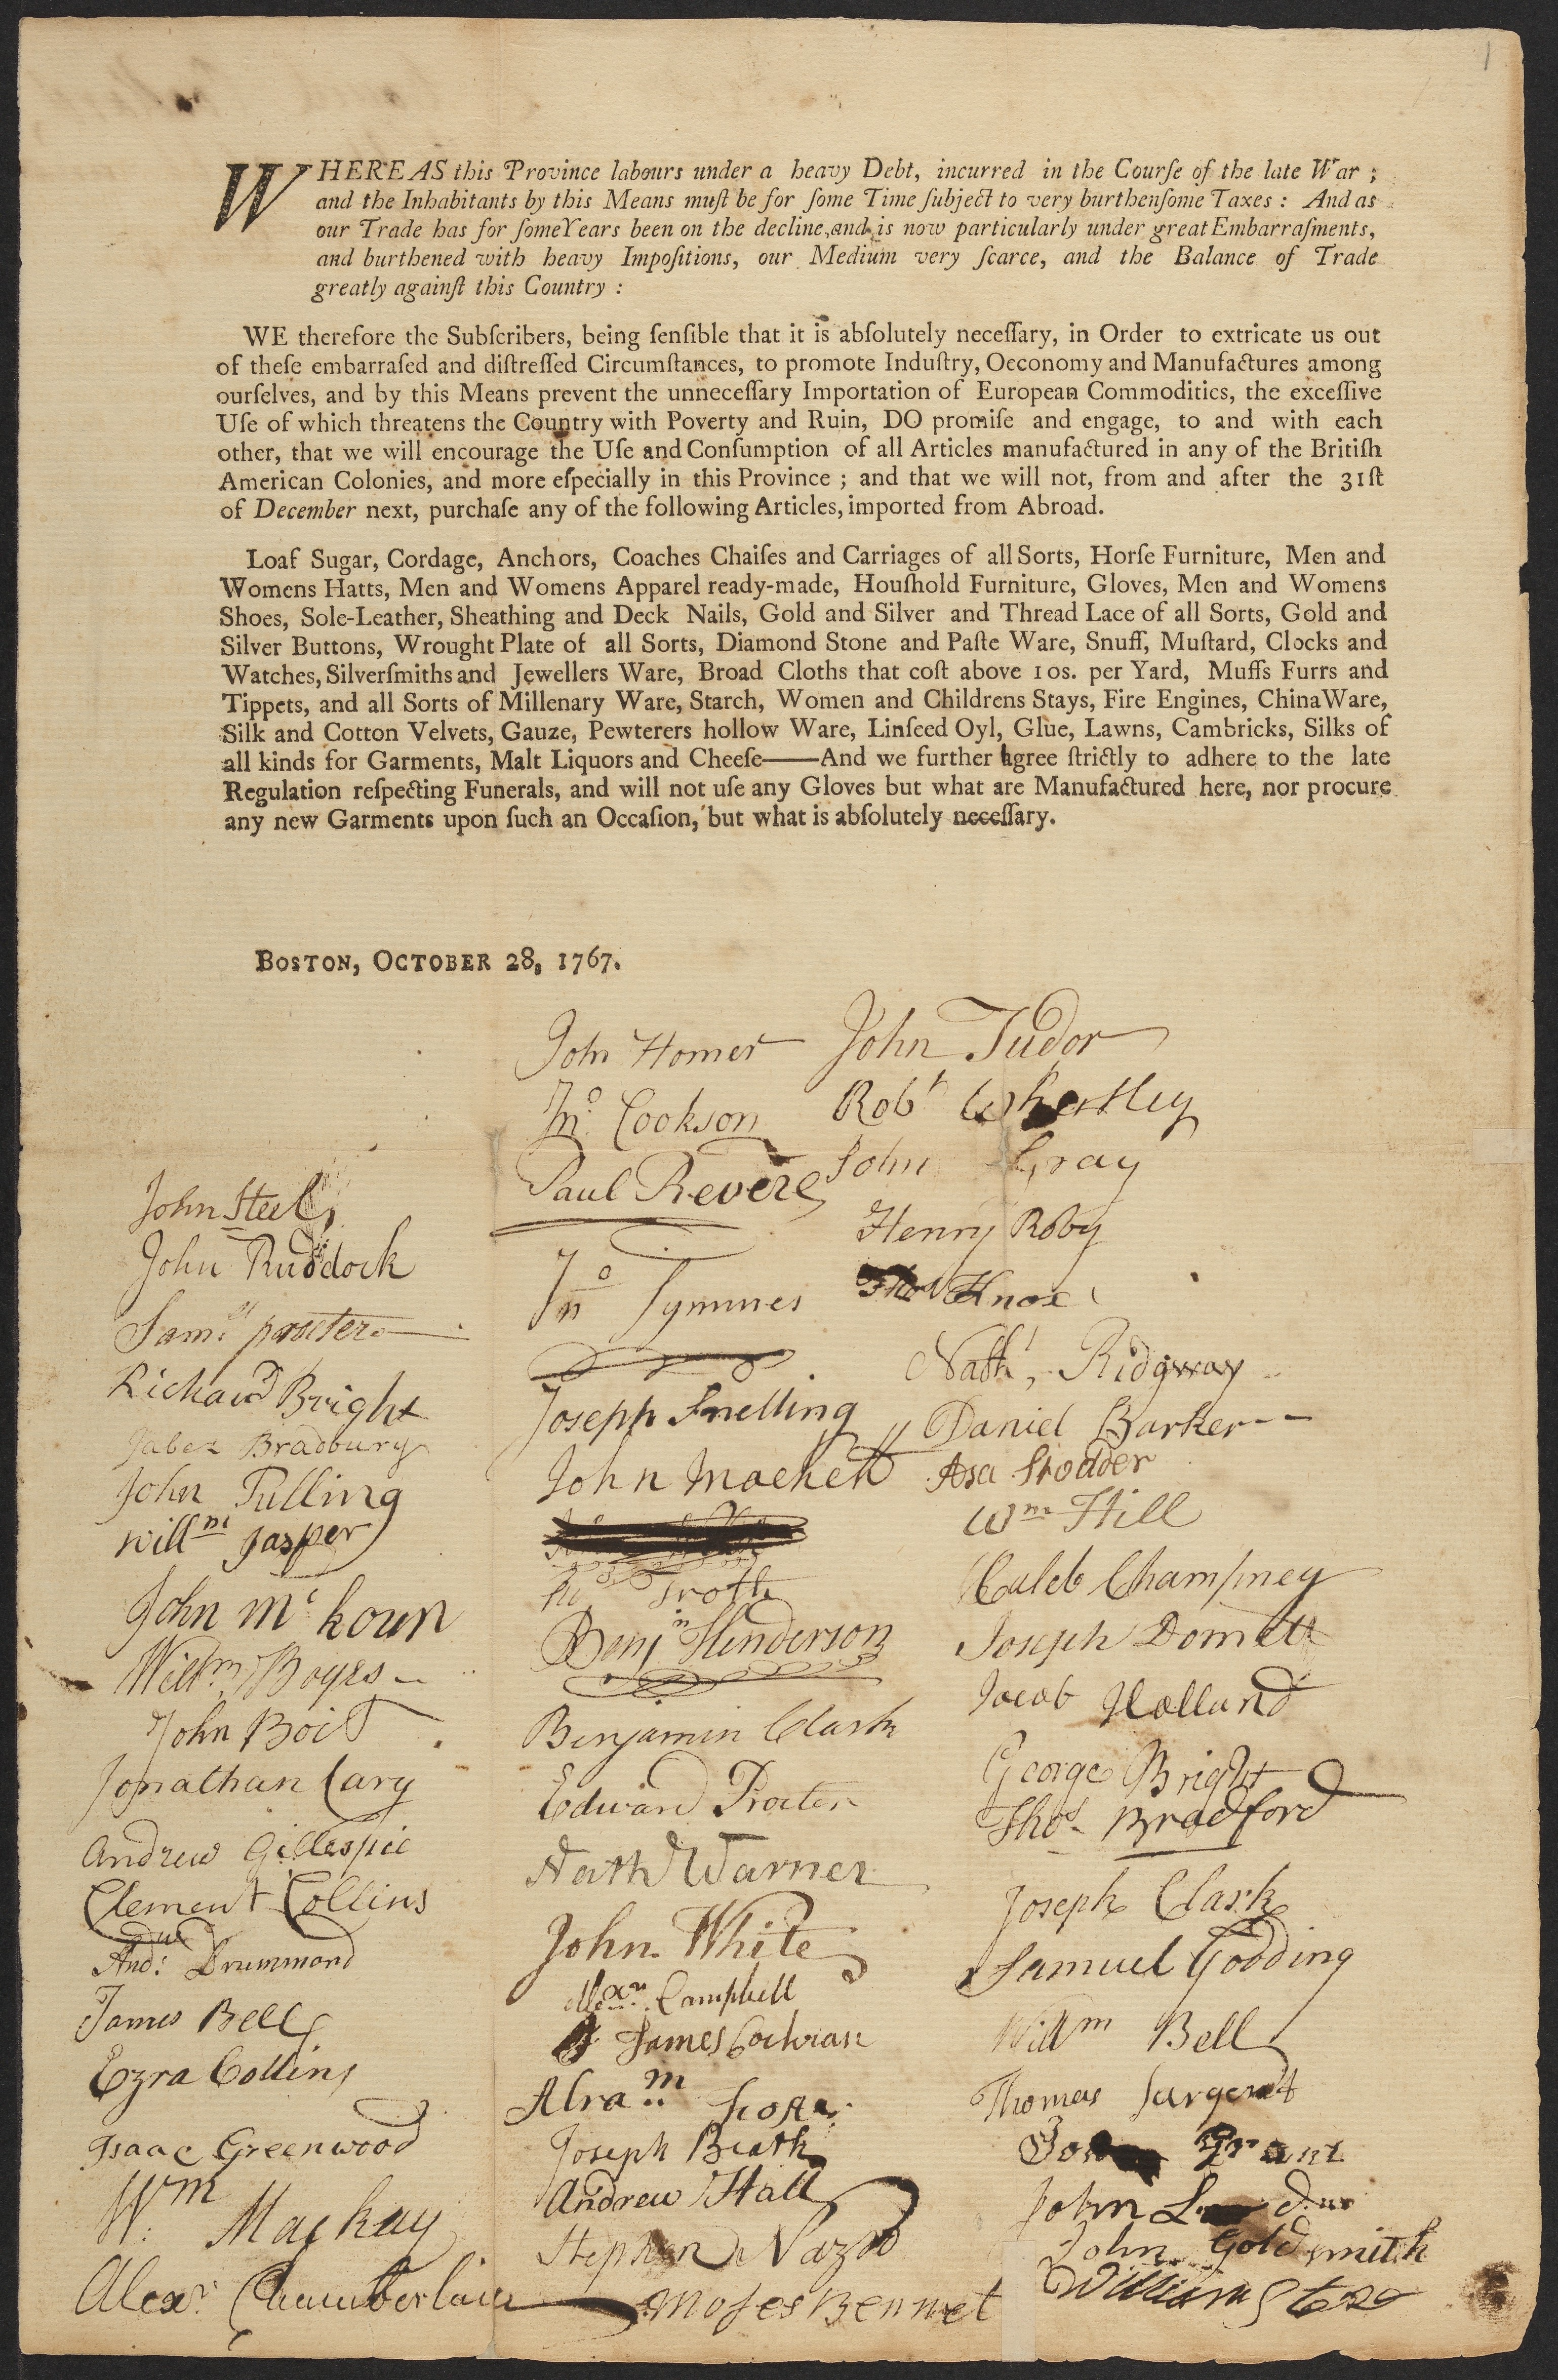 1
WHEREAS this Province labours under a heavy Debt, incurred in the Courſe of the late War ;
and the Inhabitants by this Means muſt be for ſome Time ſubject to very burthenſome Taxes : And as
our Trade has for ſome Years been on the decline, and is now particularly under great Embarraſments,
and burthened with heavy Impoſitions, our Medium very ſcarce, and the Balance of Trade
greatly againſt this Country :
WE therefore the Subſcribers, being ſenſible that it is abſolutely neceſſary, in Order to extricate us out
of theſe embarraſed and diſtreſſed Circumſtances, to promote Induſtry, Oeconomy and Manufactures among
ourſelves, and by this Means prevent the unneceſſary Importation of European Commodities, the exceſſive
Uſe of which threatens the Country with Poverty and Ruin, DO promiſe and engage, to and with each
other, that we will encourage the Uſe and Conſumption of all Articles manufactured in any of the Britiſh
American Colonies, and more eſpecially in this Province ; and that we will not, from and after the 31ſt
of December next, purchaſe any of the following Articles, imported from Abroad.
Loaf Sugar, Cordage, Anchors, Coaches Chaiſes and Carriages of all Sorts, Horſe Furniture, Men and
Womens Hatts, Men and Womens Apparel ready-made, Houſhold Furniture, Gloves, Men and Womens
Shoes, Sole-Leather, Sheathing and Deck Nails, Gold and Silver and Thread Lace of all Sorts, Gold and
Silver Buttons, Wrought Plate of all Sorts, Diamond Stone and Paſte Ware, Snuff, Muſtard, Clocks and
Watches, Silverſmiths and Jewellers Ware, Broad Cloths that coſt above 10s. per Yard, Muffs Furrs and
Tippets, and all Sorts of Millenary Ware, Starch, Women and Childrens Stays, Fire Engines, China Ware,
Silk and Cotton Velvets, Gauze, Pewterers hollow Ware, Linſeed Oyl, Glue, Lawns, Cambricks, Silks of
all kinds for Garments, Malt Liquors and Cheeſe——And we further agree ſtrictly to adhere to the late
Regulation reſpecting Funerals, and will not uſe any Gloves but what are Manufactured here, nor procure
any new Garments upon ſuch an Occaſion, but what is abſolutely neceſſary.
BOSTON, OCTOBER 28, 1767.
John Steel
John Ruddock
Saml procter
Richard Bright
Jabez Bradbury
John Pulling
Willm Jasper
John Mc koun
Willm Boyes
John Boit
Jonathan Cary
Andrew Gillespie
Clement Collins
Andw Drummond
James Bell
Ezra Collins
Isaac Greenwood
Wm Mackay
Alexr Chamberlain
John Homer
Jno Cookson
Paul Revere
Jno Symmes
Joseph Snelling
John
Trott
Benjn Henderson
Benjamin Clark
Edward Procter
Nath Warner
John White
Alexr Campbell
James Cochran
Abram
Joseph Beath
Andrew Hall
Stephen Nazro
Moses Bennet
John Tudor
Robt
John Gray
Henry Roby
Thos Knox
Nathl Ridgway
Daniel Barker
Asa Stodder
Wm Hill
Caleb Champney
Joseph Domett
Jacob Holland
George Bright
Thos Bradford
Joseph Clark
Samuel Gooding
Willm Bell
Thomas Sargent
Grant
John
John Goldsmith
William